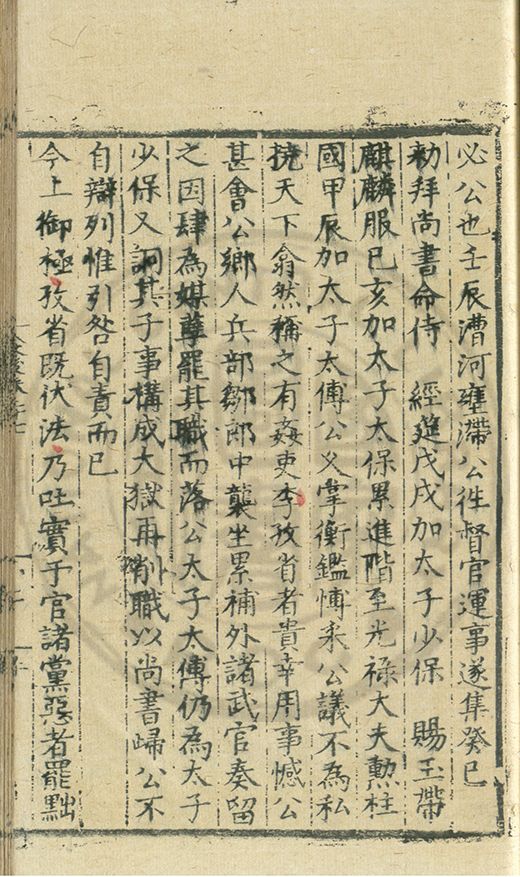 必公也壬辰漕河壅滯公徃督官運事遂集癸巳
勑拜尚書命侍　經筵戊戌加太子少保　賜玉帶
麒麟服己亥加太子太保累進階至光禄大夫勲柱
國甲辰加太子太傅公乂掌衡鑑愽采公議不為私
撓天下翕然稱之有姦吏李孜省者貴幸用事憾公
甚會公鄉人兵部鄒郎中襲坐累補外諸武官奏留
之因肆為媒孽罷其職而落公太子太傅仍為太子
少保又詗其子事構成大獄再削職以尚書歸公不
自辯列惟引咎自責而已
今上御極孜省既伏法乃吐實于官諸黨惡者罷黜